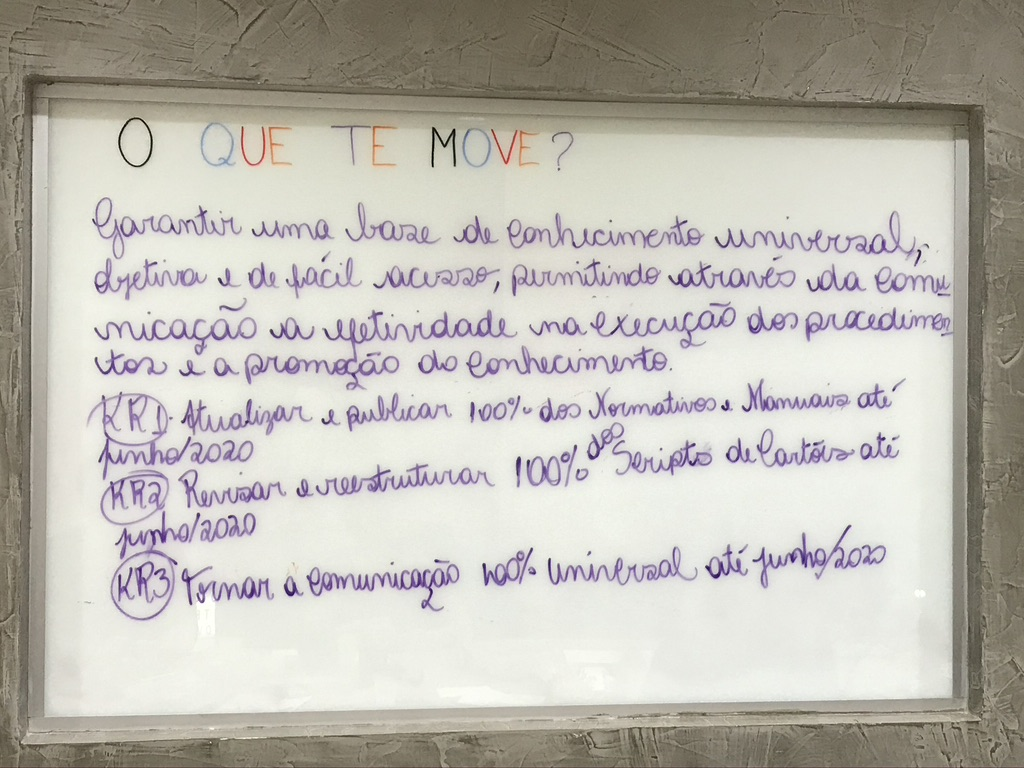 O QUE TE MOVE?
Garantir uma base de conhecimento universal,
objetiva e de fácil acesso, permitindo através da comu-
nicação a efetividade na execução dos procedimen-
tos e a promoção do conhecimento.
KR1 - Atualizar e publicar 100% dos Normativos e Manuais até
junho/2020
KR2 Revisar e reestruturar 100% dos Scripts de Cartões até
junho/2020
KR3 Tornar a comunicação 100% universal até junho/2020